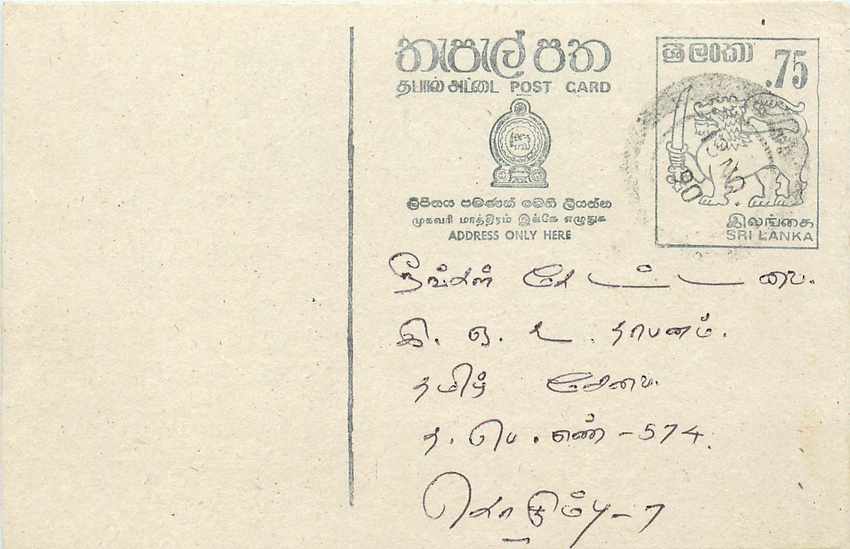 තැපැල් පත
தபால் அட்டை POST CARD
ලිපිනය පමණක් මෙහි ලියන්න
முகவரி மாத்திரம் இங்கே எழுதுக
ADDRESS ONLY HERE
ශ්‍රී ලංකා
.75
இலங்கை
SRI LANKA
நீங்கள் கேட்டவை.
இ. ஒ. உ. தாபனம்.
தமிழ் சேவை.
த. பெ. எண் - 574.
கொழும்பு - 7